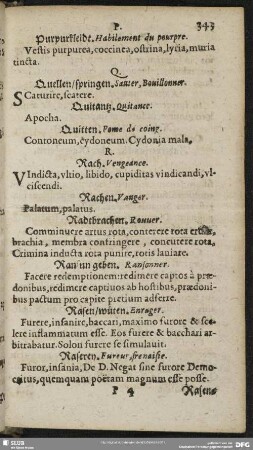 P. 343
Purpurkleidt, Habilement du pourpre.
Vestis purpurea, coccinea, ostrina, lycia, muria
tincta.
Q
Quellen/springen, Sauter, Bouillonner.
Scaturire, scatere.
Quitantz, Quitance.
Apocha.
Quitten, Pome de coing.
Contoneum, cydoneum. Cydonia mala.
R.
Rach, Vengeance.
VIndicta, vltio, libido, cupiditas vindicandi, vl-
ciscendi.
Rachen, Vanger.
Palatum, palatus.
Radtbrachen, Rouuer.
Comminuere artus rota, conterere rota crura,
brachia, membra confringere, concutere rota.
Crimina inducta rota punire, rotis laniare.
Rantzun geben, Ransonner.
Facere redemptionem: redimere captos à præ-
donibus, redimere captiuos ab hostibus, prædoni-
bus pactum pro capite pretium adferre.
Rasen/wüten, Enrager.
Furere, insanire, baccari, maximo furore & sce-
lere inflammatum esse. Eos furere & bacchari ar-
bitrabatur. Solon furere se simulauit.
Raseren, Fureur, frenaisie.
Furor, insania, De D. Negat sine furore Demo-
critus, quemquam poëtam magnum esse posse.
P 4 Rasens
SLUB
DFG